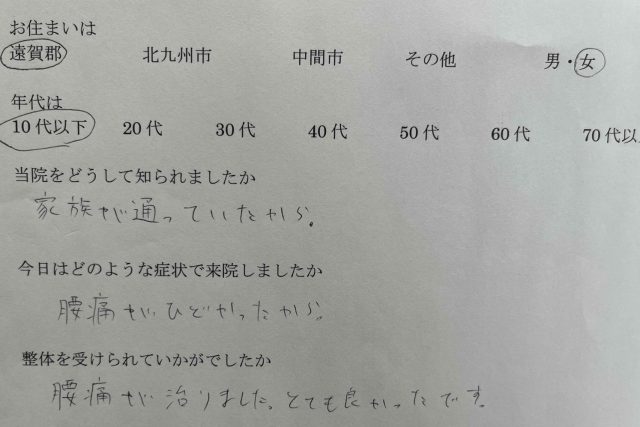 お住まいは
遠賀郡 北九州市 中間市 その他 男・女
年代は
10代以下 20代 30代 40代 50代 60代 70代以
当院をどうして知られましたか
家族が通っていたから。
今日はどのような症状で来院しましたか
腰痛がひどかったから。
整体を受けられていかがでしたか
腰痛が治りました。とても良かったです。